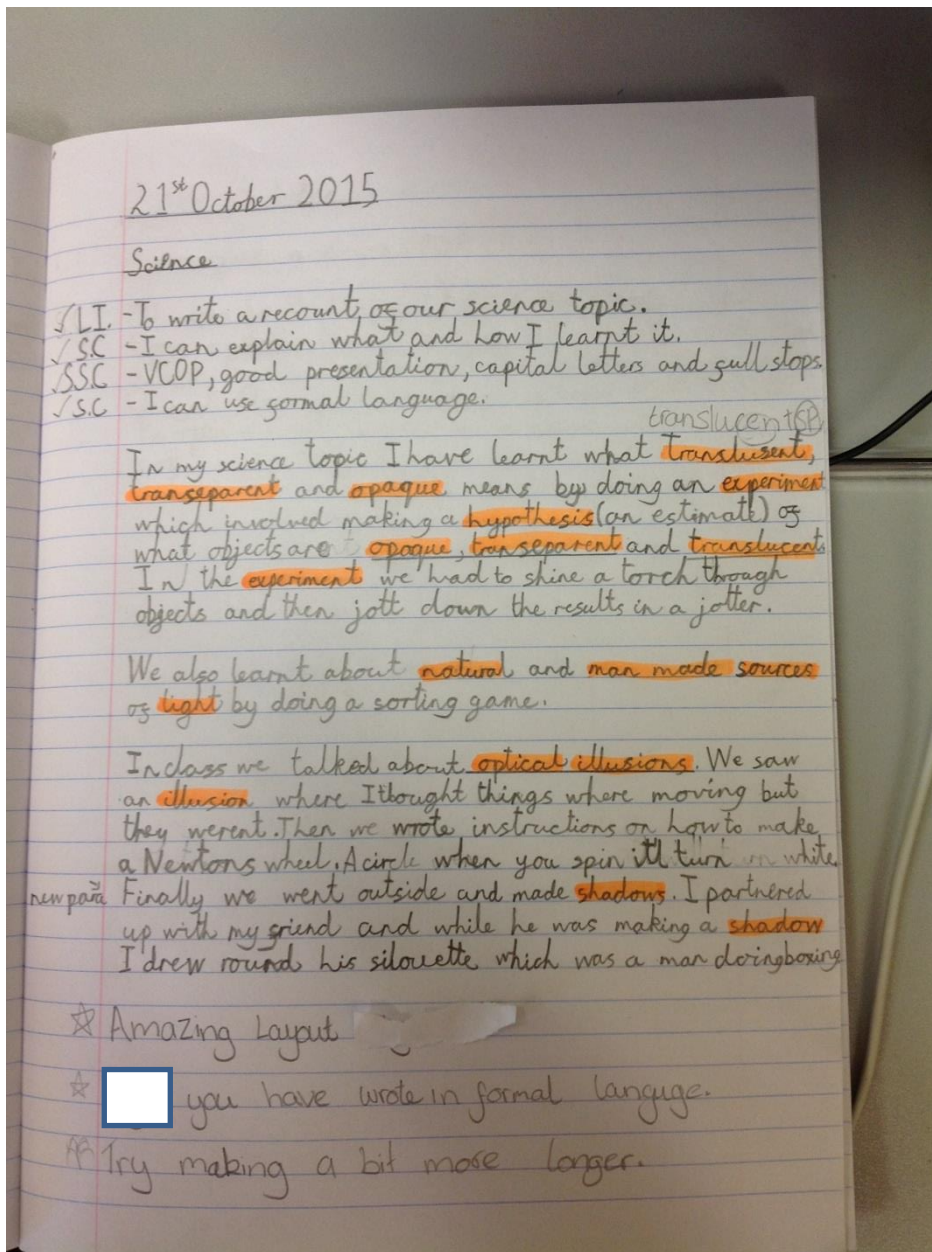 21st October 2015
Science
✓ L.I. - To write a recount of our science topic.
✓ S.C - I can explain what and how I learnt it.
✓ S.S.C - VCOP, good presentation, capital letters and full stops.
✓ S.C - I can use formal language.
translucent SP
In my science topic I have learnt what translusent,
transeparent and opaque means by doing an experiment
which involved making a hypothesis (an estimate) of
what objects are opaque, transeparent and translucent.
In the experiment we had to shine a torch through
objects and then jott down the results in a jotter.
We also learnt about natural and man made sources
of light by doing a sorting game.
In class we talked about optical illusions. We saw
an illusion where I thought things where moving but
they werent. Then we wrote instructions on how to make
a Newtons wheel. A circle when you spin itll turn white.
new para Finally we went outside and made shadows. I partnered
up with my friend and while he was making a shadow
I drew round his silouette which was a man doing boxing
☆ Amazing Layout
☆ you have wrote in formal languge.
Try making a bit more longer.